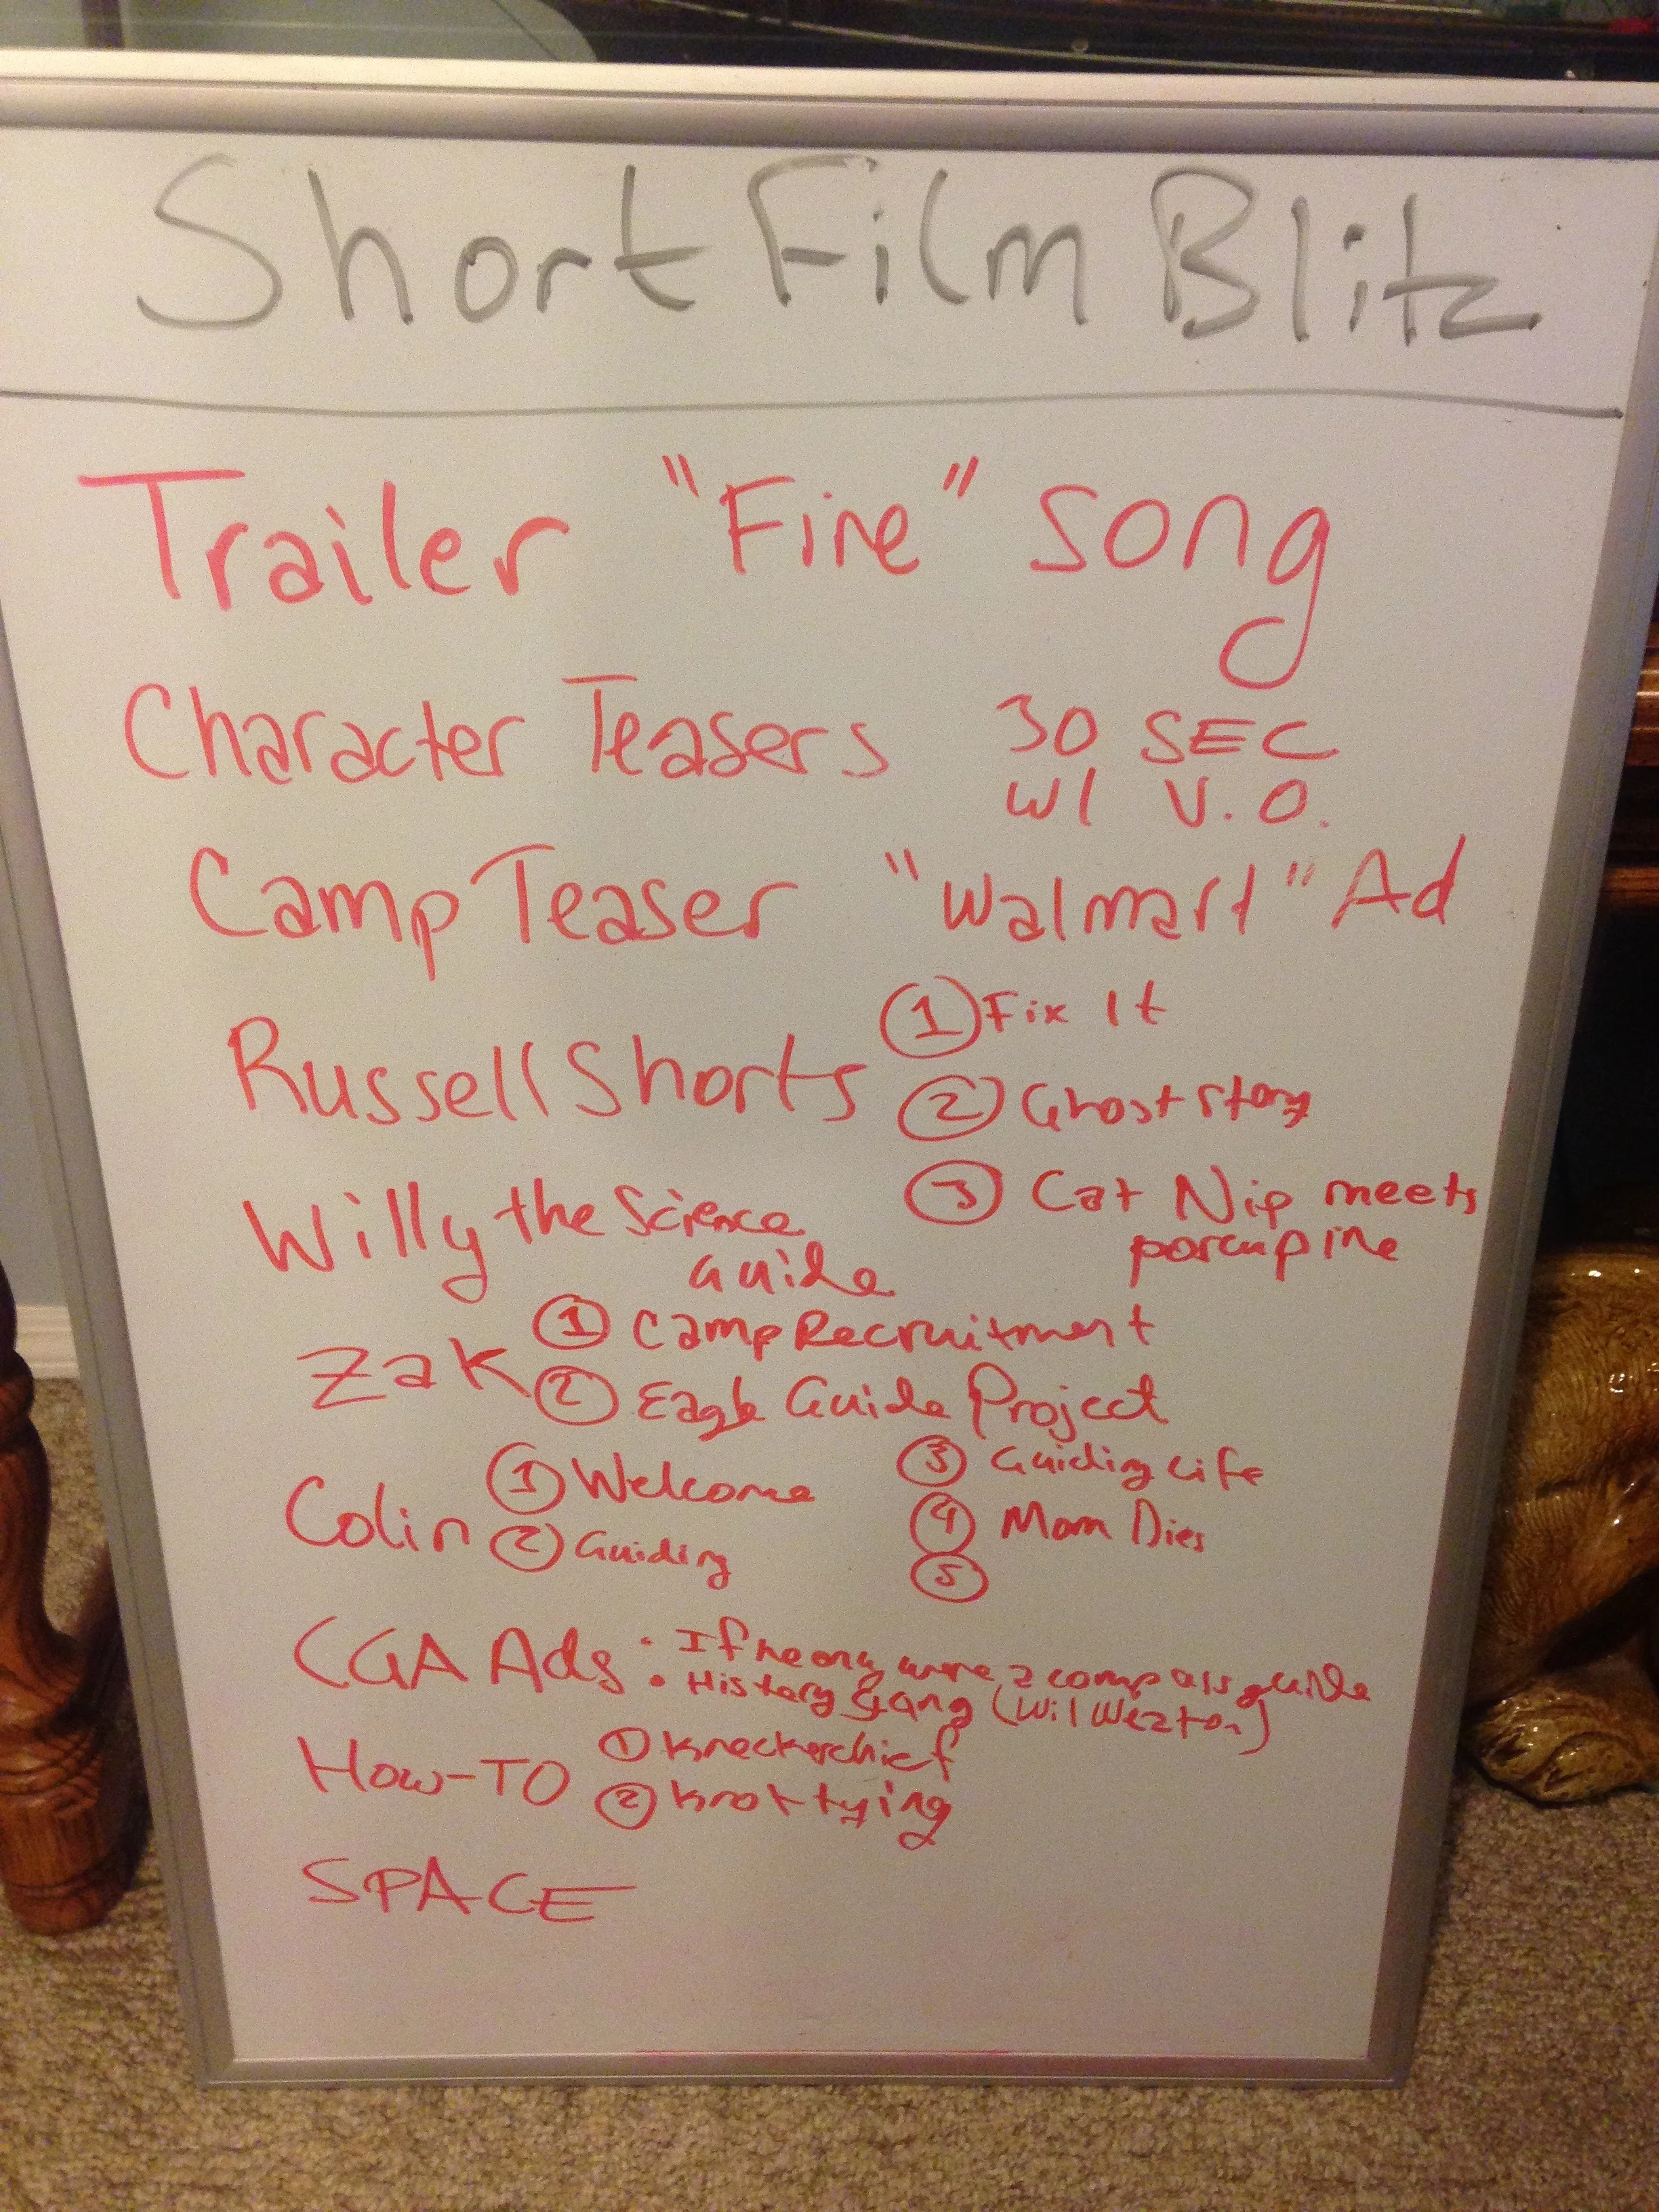 Short Film Blitz
Trailer "Fire" song
Character Teasers 30 SEC
w/ V.O.
Camp Teaser "Walmart" Ad
Russell Shorts ① Fix It
② Ghost story
③ Cat Nip meets
porcupine
Willy the Science
Guide
Zak ① Camp Recruitment
② Eagle Guide Project
Colin ① Welcome ③ Guiding Life
② Guiding ④ Mom Dies
⑤
CGA Ads • If he only were a compass guide
• History Gang (Wil Weaton)
How-TO ① Kneckerchief
② Knot tying
SPACE